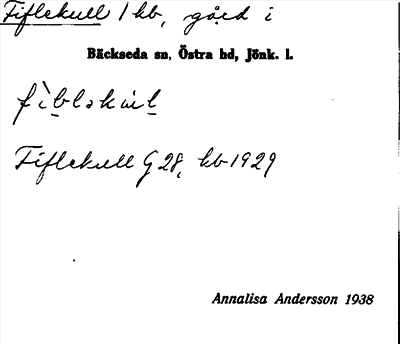 Fiflekull 1 kb, gård i
Bäckseda sn, Östra hd, Jönk. l.
fìbləkul
Fiflekull G 28, kb 1929
Annalisa Andersson 1938